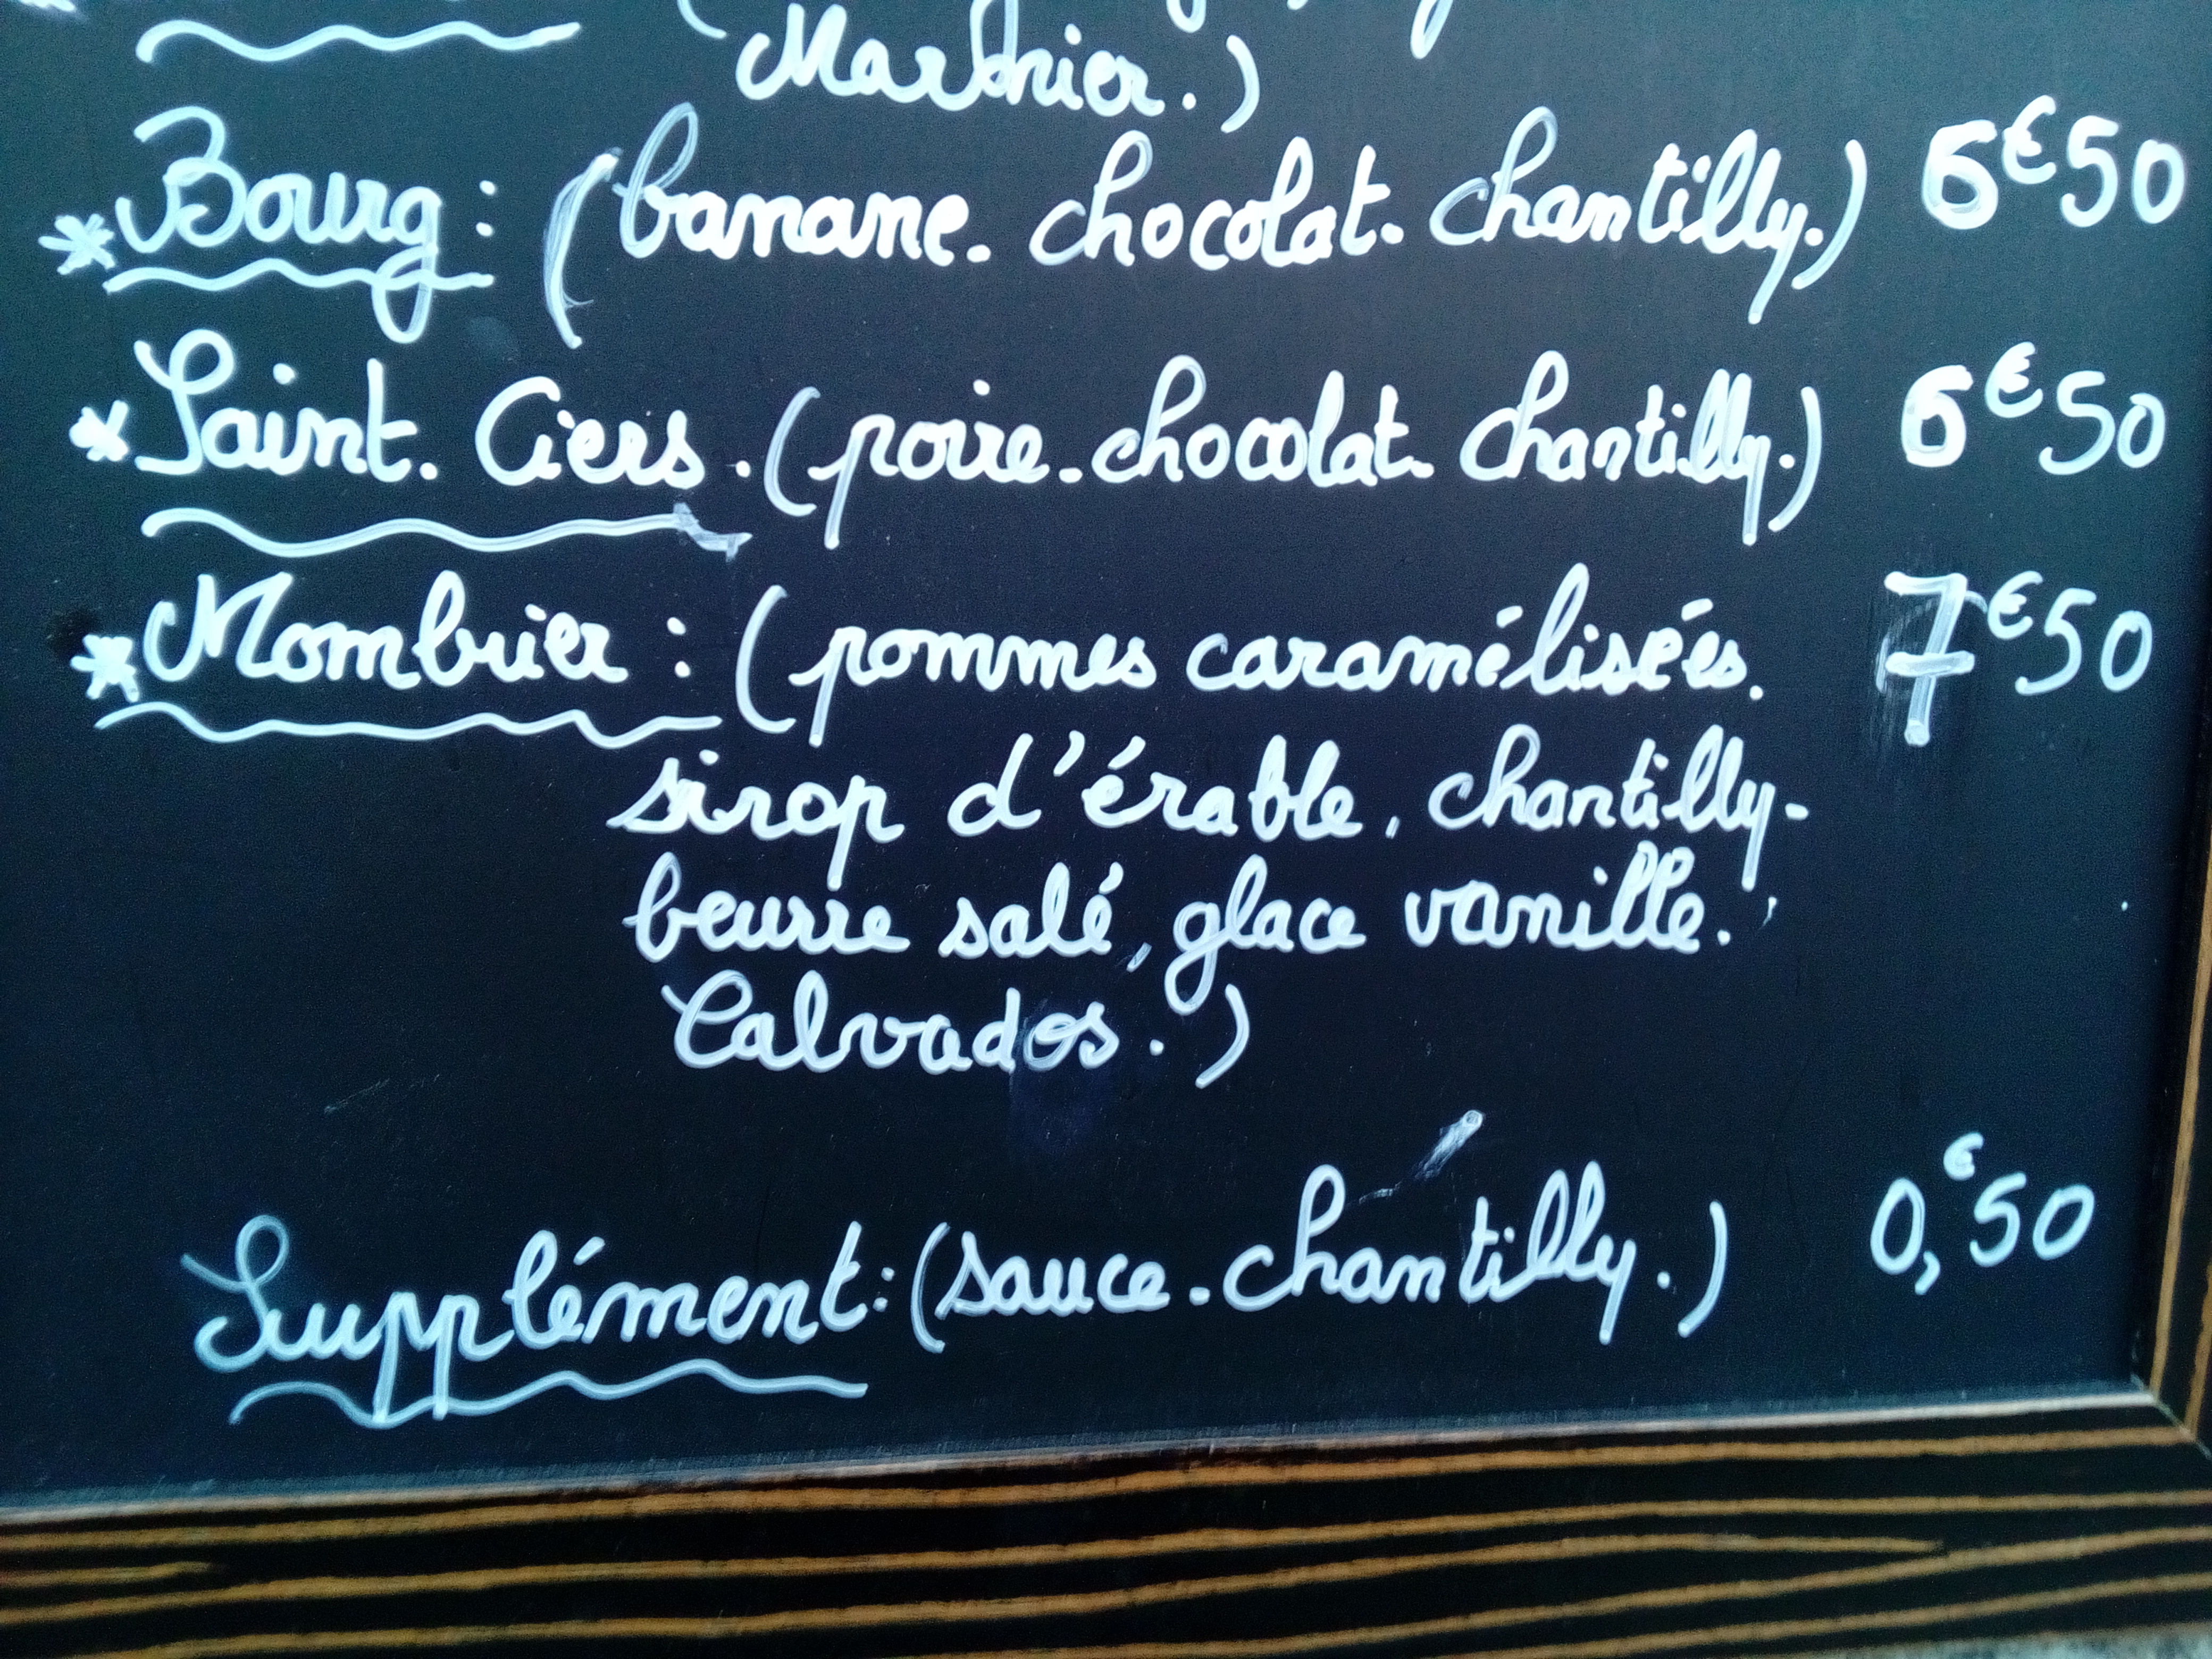 Marnier.)
*Bourg: (banane. chocolat. chantilly.) 6€50
*Saint. Ciers. (poire. chocolat. chantilly.) 6€50
*Mombrier: (pommes caramélisées. 7€50
sirop d'érable, chantilly-
beurre salé, glace vanille.
Calvados.)
Supplément: (sauce. chantilly.) 0,€50